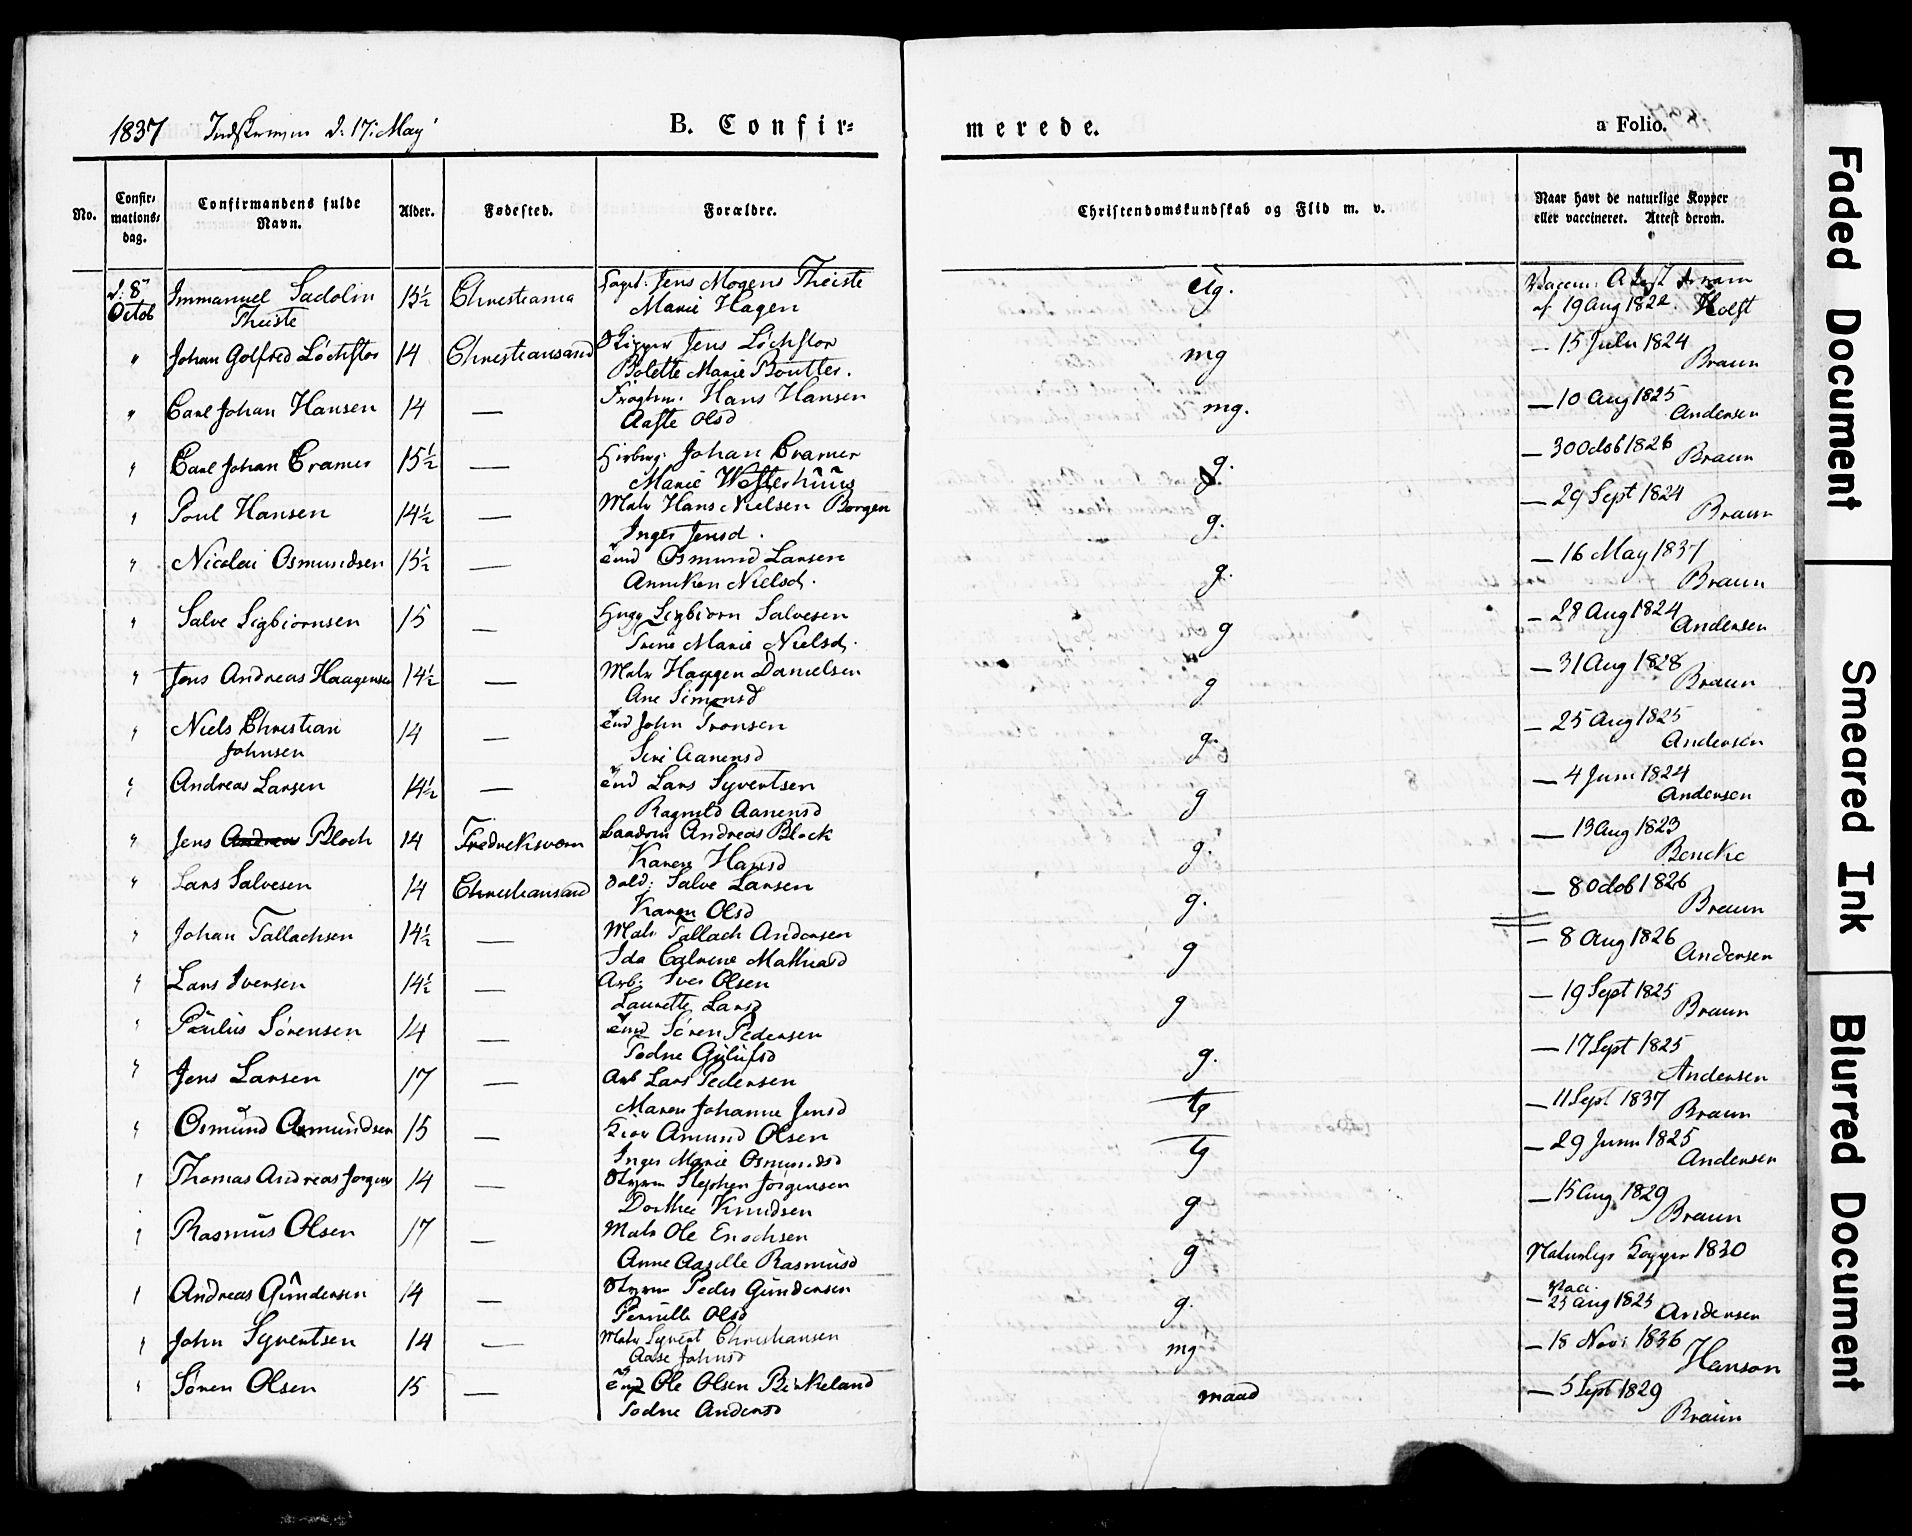 1837 d. 17. May
B. Confir=
merede.
a Folio.
No.
Confir=
mations=
dag.
Confirmandens fulde
Navn.
Alder.
Fødested.
Forældre.
Christendomskundskab og Flid m. v.
Naar havt de naturlige Kopper
eller vaccineret. Attest derom.
d: 8
Octob
Immanuel Sadolin
Theiste
15½ Christiania
Capt: Jens Mogens Theiste
Marie Hagen
Ug.
Vaccin: Attest derom
af 19 Aug 1822. Holst
" Johan Golfred Löchstor 14 Christiansand
Skipper Jens Löchstor
Bolette Marie Boutter.
mg
— 15 Julii 1824
Braun
" Carl Johan Hansen 14 —
Hans Hansen
Aaste Olsd
mg.
— 10 Aug 1825
Andersen
" Carl Johan Cramer 15½ —
Johan Cramer
Marie Westerhüus
g.
— 30 Octob 1826
Braun
" Poul Hansen 14½ —
Matr Hans Nielsen Borgen
Inger Jensd.
g.
— 29 Sept 1824
Braun
" Nicolai Osmundsen 15½ —
Osmund Larsen
Anniken Nielsd.
g.
— 16 May 1837
Braun
" Salve Sigbiornsen 15 —
Sigbiorn Salvesen
Trine Marie Nielsd.
g
— 28 Aug 1824
Andersen
" Jens Andreas Haagensen 14½ —
Matr Haagen Danielsen
Ane Simonsd
g
— 31 Aug 1828
Braun
" Niels Christian
Johnsen
14 —
John Tronsen
Siri Aanensd
g.
— 25 Aug 1825
Andersen
" Andreas Larsen 14½ —
Lars Syvertsen
Ragnild Aanensd
g
— 4 Juni 1824
Andersen
" Jens Andreas Bloch 14 Fredricksværn
Andreas Block
Karen Hansd
g.
— 13 Aug 1823
Bencke
" Lars Salvesen 14 Christiansand
Sold: Salve Larsen
Karen Olsd
g.
— 8 Octob 1826
Braun
" Johan Tallachsen 14½ —
Matr Tallach Andersen
Ida Catrine Mathiasd
g
— 8 Aug 1826
Andersen
" Lars Iversen 14½ —
Arb: Iver Olsen
Laurette Larsd
g
— 19 Sept 1825
Braun
" Paulus Sörensen 14 —
Sören Pedersen
Todne
g.
— 17 Sept 1825
Andersen
" Jens Larsen 17 —
Arb Lars Pedersen
Maren Johanne Jensd
tg
— 11 Sept 1837
Braun
" Osmund Asmundsen 15 —
Amund Olsen
Inger Marie Osmundsd
tg
— 29 Juni 1825
Andersen
" Thomas Andreas Jorgens 14 —
Styrm Stephen Jörgensen
Dorthee Knudsen
g
— 15 Aug 1829
Braun
" Rasmus Olsen 17 —
Matr Ole Enochsen
Anne Aaselle Rasmusd
g
Naturlige Kopper 1830
" Andreas Gündersen 14 —
Styrm Peder Gündersen
Pernille Olsd
g.
Vacc.
— 25 Aug 1825 Andersen
" John Syvertsen 14 —
Matr Syvert Christiansen
Aase Johnsd
mg
— 18 Nov: 1836
Hanson
" Sören Olsen 15 —
Ole Olsen Birkeland
Todne Andersd
maad
— 5 Sept 1829
Braün
Faded Document
Smeared Ink
Blurred Document